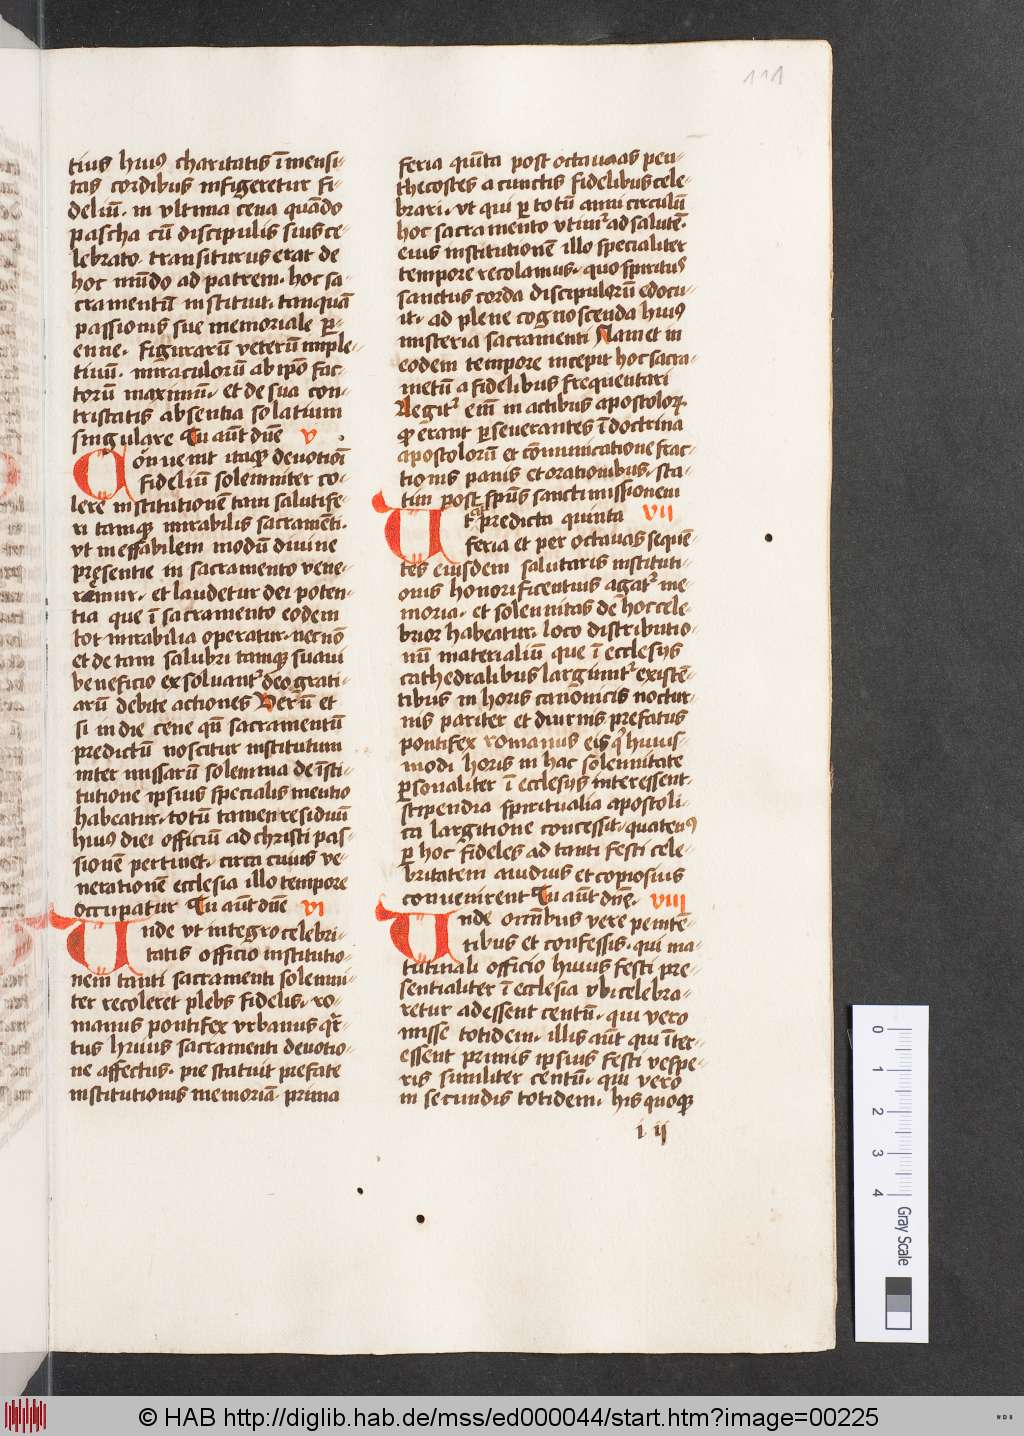 111
tius huiꝰ charitatis īmensi-
tas cordibus infigeretur fi-
deliū. in vltima cena quādo
pascha cū discipulis suis ce-
lebrato. transiturus erat de
hoc mūdo ad patrem. hoc sa-
cramentū instituit. tanquā
passionis sue memoriale ꝑ-
enne. figurarū veterū imple-
tiuū. miraculorū ab ipō fac-
torū maximū. et de sua con-
tristatis absentia solatium
singulare Tu aūt dn̄e v
Conuenit itaqꝫ deuotiōi
fideliū solenniter co-
lere institutionē tam salutife-
ri tamqꝫ mirabilis sacramēti.
vt ineffabilem modū diuine
pręsentie in sacramento vene-
remur. et laudetur dei poten-
tia que ī sacramento eodem
tot mirabilia operatur. necnō
et de tam salubri tamqꝫ suaui
beneficio exsoluantᷣ deo grati-
arū debite actiones Verū et
si in die cene qn̄ sacramentū
predictū noscitur institutum
inter missarū solemnia de īsti-
tutione ipsius specialis mentio
habeatur. totū tamen residuū
huiꝰ diei officiū ad christi pas-
sionē pertinet. circa cuius ve-
nerationē ecclesia illo tempore
occupatur Tu aūt dn̄e vi
Unde vt integro celebri-
tatis officio institutio-
nem tanti sacramenti solenni-
ter recoleret plebs fidelis. ro-
manus pontifex vrbanus qr̄-
tus huius sacramenti deuotio-
ne affectus. pie statuit prefate
institutionis memoriā. prima
feria quīta post octauas pen-
thecostes a cunctis fidelibus cele-
brari. vt qui ꝑ totū anni circulū
hoc sacramento vtimᷣ ad salutē.
eius institutionē illo specialiter
tempore recolamus. quo spiritus
sanctus corda discipulorū edocu-
it. ad plene cognoscenda huiꝰ
misteria sacramenti Nam et in
eodem tempore incepit hoc sacra-
mētū a fidelibus frequentari
Legitᷣ eīn in actibus apostoloꝝ.
ꝙ erant ꝑseuerantes ī doctrina
apostolorū et cōmunicatione frac-
tionis panis et orationibus. sta-
tim post spūs sancti missionem
Ut predicta quinta vii
feria et per octauas sequē-
tes eiusdem salutaris instituti-
onis honorificentius agatᷣ me-
moria. et solennitas de hoc cele-
brior habeatur. loco distributio-
nū materialiū que ī ecclesijs
cathedralibus largiuntᷣ existē-
tibus in horis canonicis noctur-
nis pariter et diurnis prefatus
pontifex romanus eis qͥ huius-
modi horis in hac solennitate
ꝑsonaliter ī ecclesijs interessent.
stipendia spiritualia apostoli-
ca largitione concessit. quatenꝰ
ꝑ hoc fideles ad tanti festi cele-
britatem auidius et copiosius
conuenirent Tu aūt dn̄e. viii
Unde omībus vere penitē-
tibus et confessis. qui ma-
tutinali officio huius festi pre-
sentialiter ī ecclesia vbi celebra-
retur adessent centū. qui vero
misse totidem. illis aūt qui īter-
essent primis ipsius festi vespe-
ris similiter centū. qui vero
in secundis totidem. his quoqꝫ
i ij
0 1 2 3 4
Gray Scale
© HAB http://diglib.hab.de/mss/ed000044/start.htm?image=00225